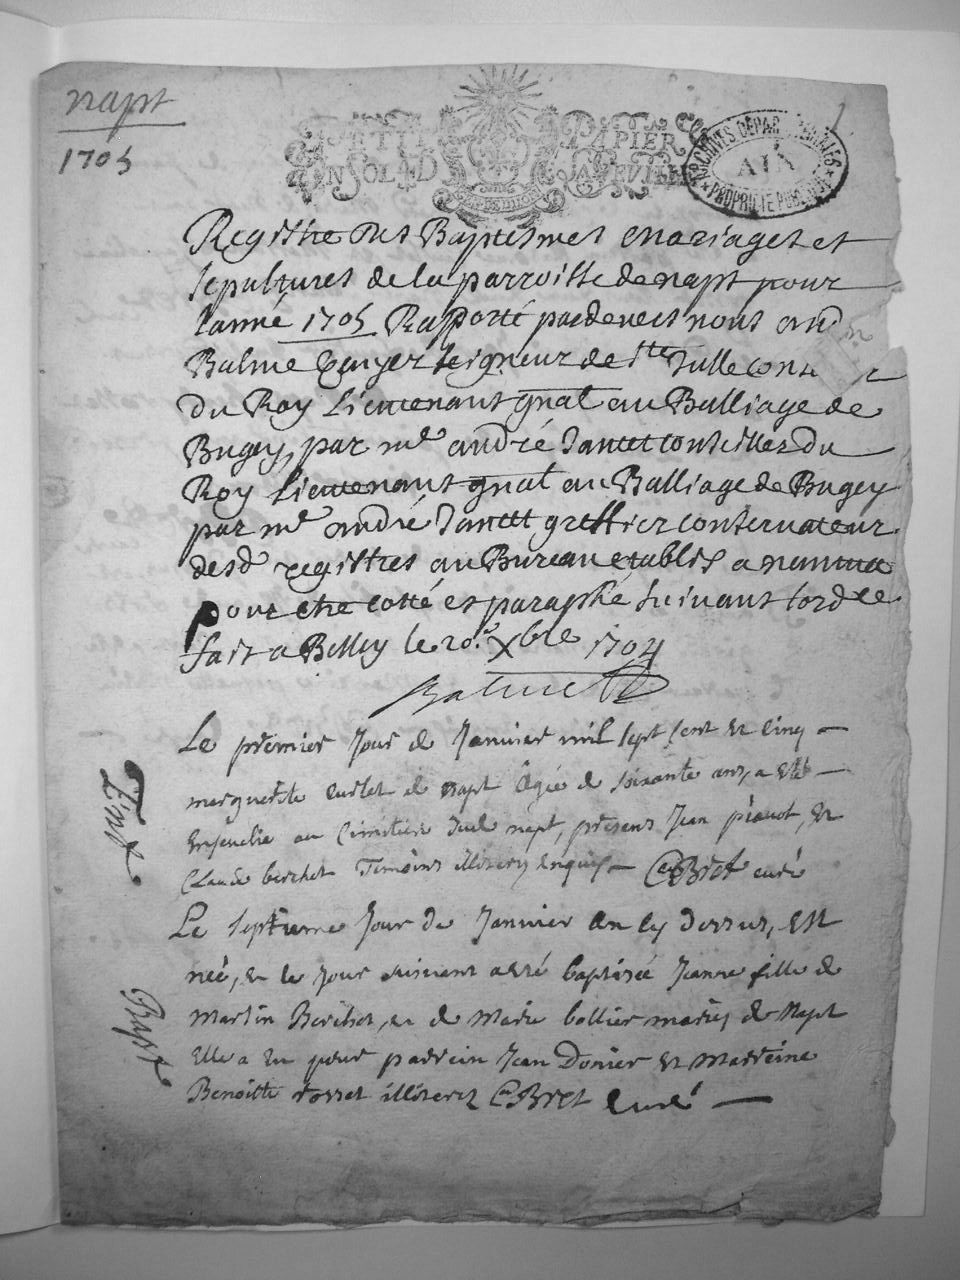 napt
1705
1
PETIT PAPIER
UN SOL LA FEUILLE
ARCHIVES DEPARTEMENTALES
AIN
PROPRIETE PUBLIQUE
Registre des Baptesmes mariages et
sepultures de la parroisse de napt pour
lanné 1705 Rapporté pardevers nous
Balme Escuyer seigneur de ste Julle
du Roy Lieutenant gnal au Balliage de
Bugey, par mr andré Jantet conseiller du
Roy Lieutenant gnal au Balliage de Bugey
par mr andré Jantet greffier conservateur
desd registres au Bureau establis a nantua
pour etre cotté et paraphé suivant lordre
fait a Belley le 20e Xbre 1704
Balme
Le premier Jour de Janvier mil sept cent et cinq
marguerite de napt Agée de soixante ans, a esté
Ensevelie au Cimetiere dud napt, présens Jean et
Claude berchet Temoins illiterez enquis CBret curé
Le septieme Jour de Janvier an cy dessus, est
née, et le jour suivant a esté baptisée Jeanne fille de
Martin Berchet, et de Marie bollier mariez de Napt
Elle a eu pour parrein Jean Donier et Marreine
Benoitte illiterez CBret Curé
Bapt